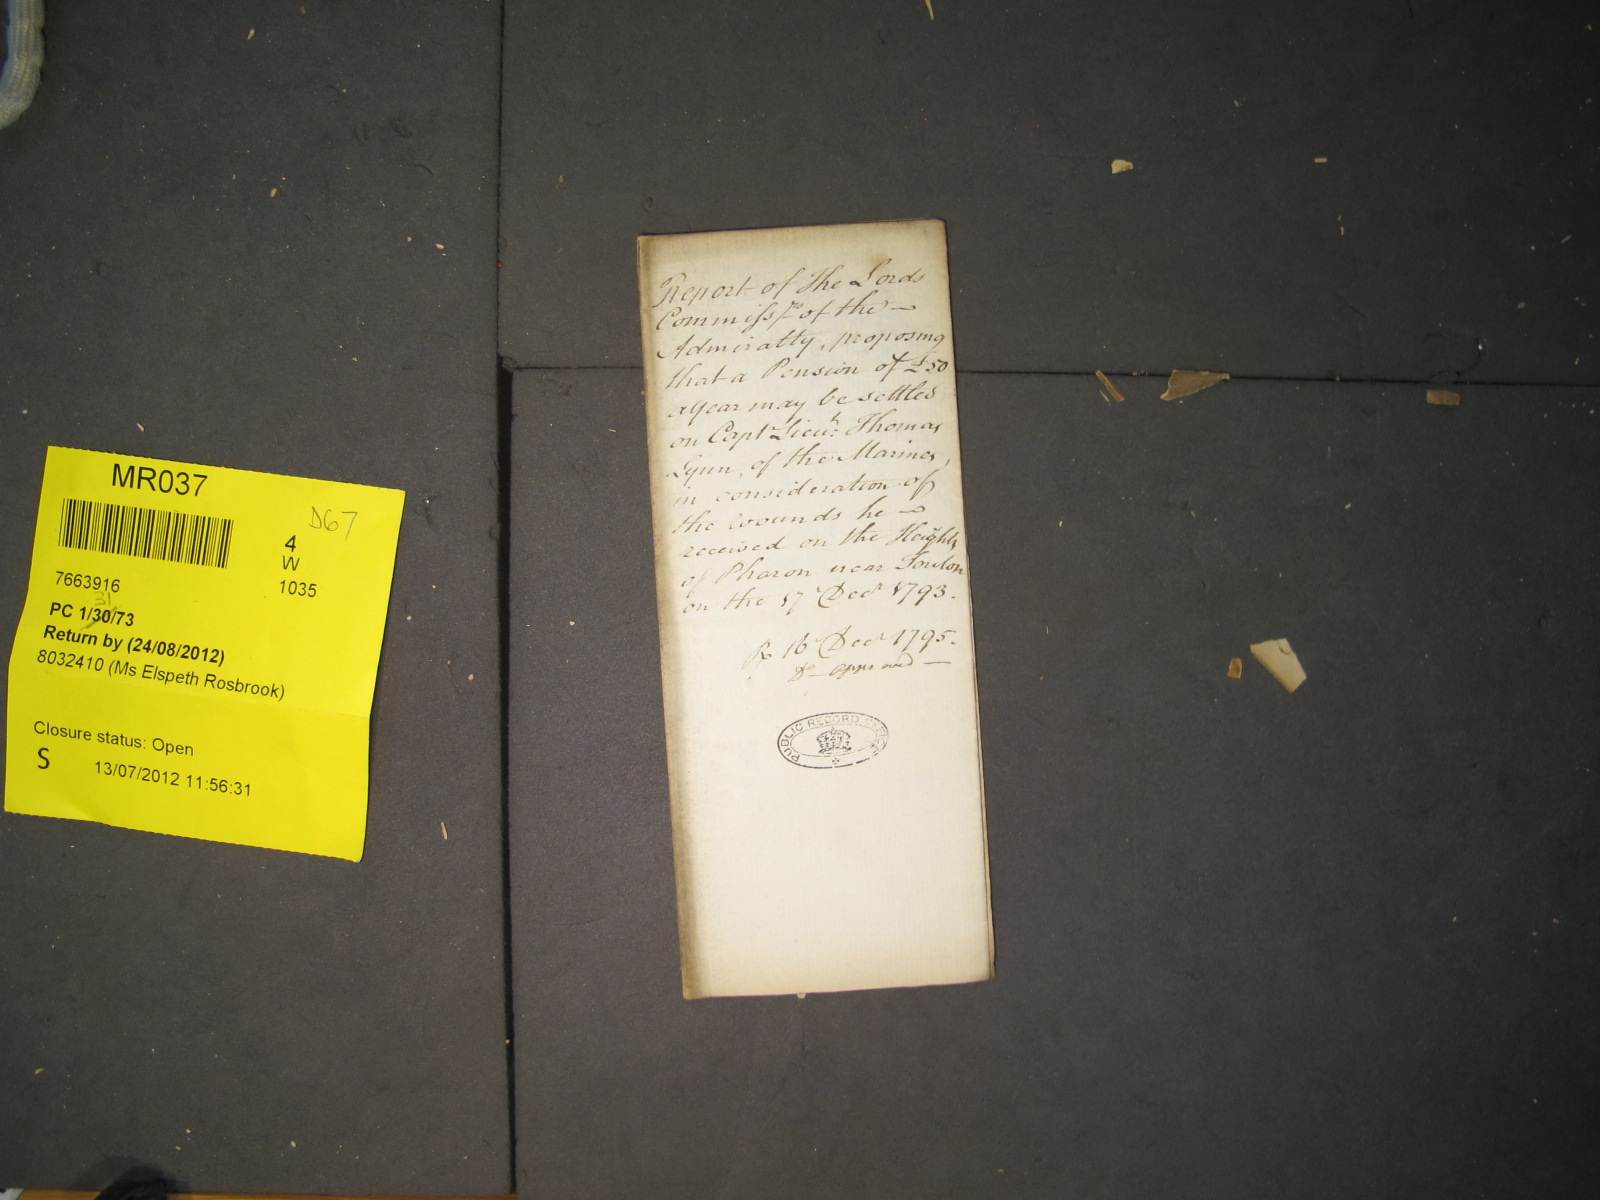 Report of the Lords
Commissrs of the
Admiralty, proposing
that a Pension of £50
a year may be settled
on Captn Lieut: Thomas
Lynn, of the Marines,
in consideration of
the wounds he
received on the Heights
of Pharon near Toulon
on the 17 Decr 1793.
R 16 Decr 1795.
Do approved
PUBLIC RECORD OFFICE
MR037
D67
4
W
1035
7663916
31
PC 1/30/73
Return by (24/08/2012)
8032410 (Ms Elspeth Rosbrook)
Closure status: Open
S
13/07/2012 11:56:31